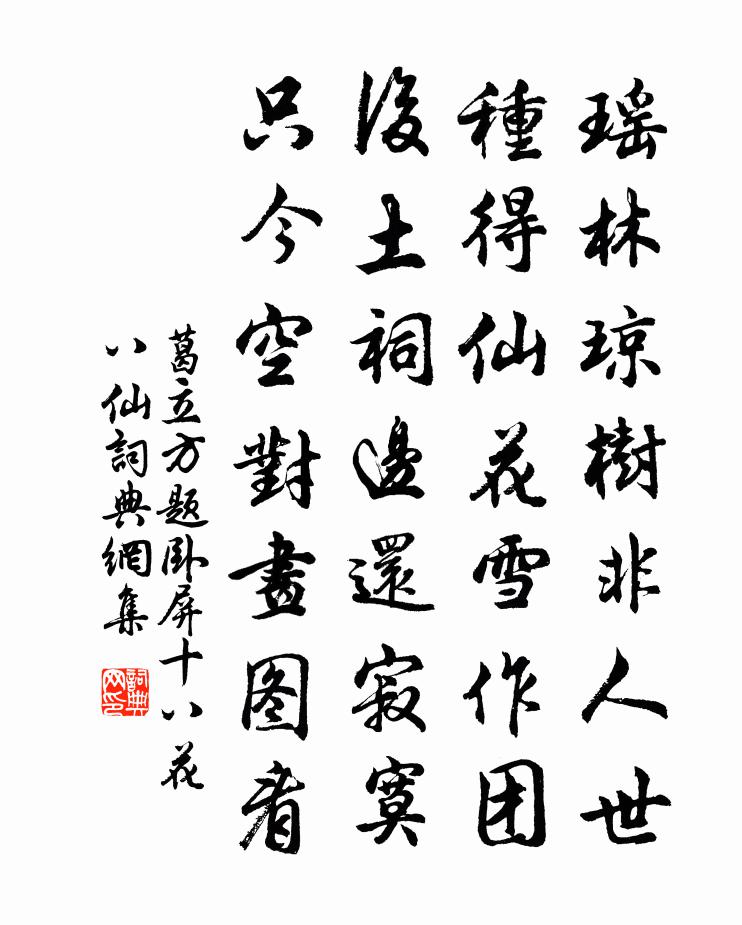 瑶林琼樹非人世
種得仙花雪作团
後土祠邊還寂寞
只今空對畫图看
葛立方题卧屏十八花
八仙詞典網集
詞典
网印